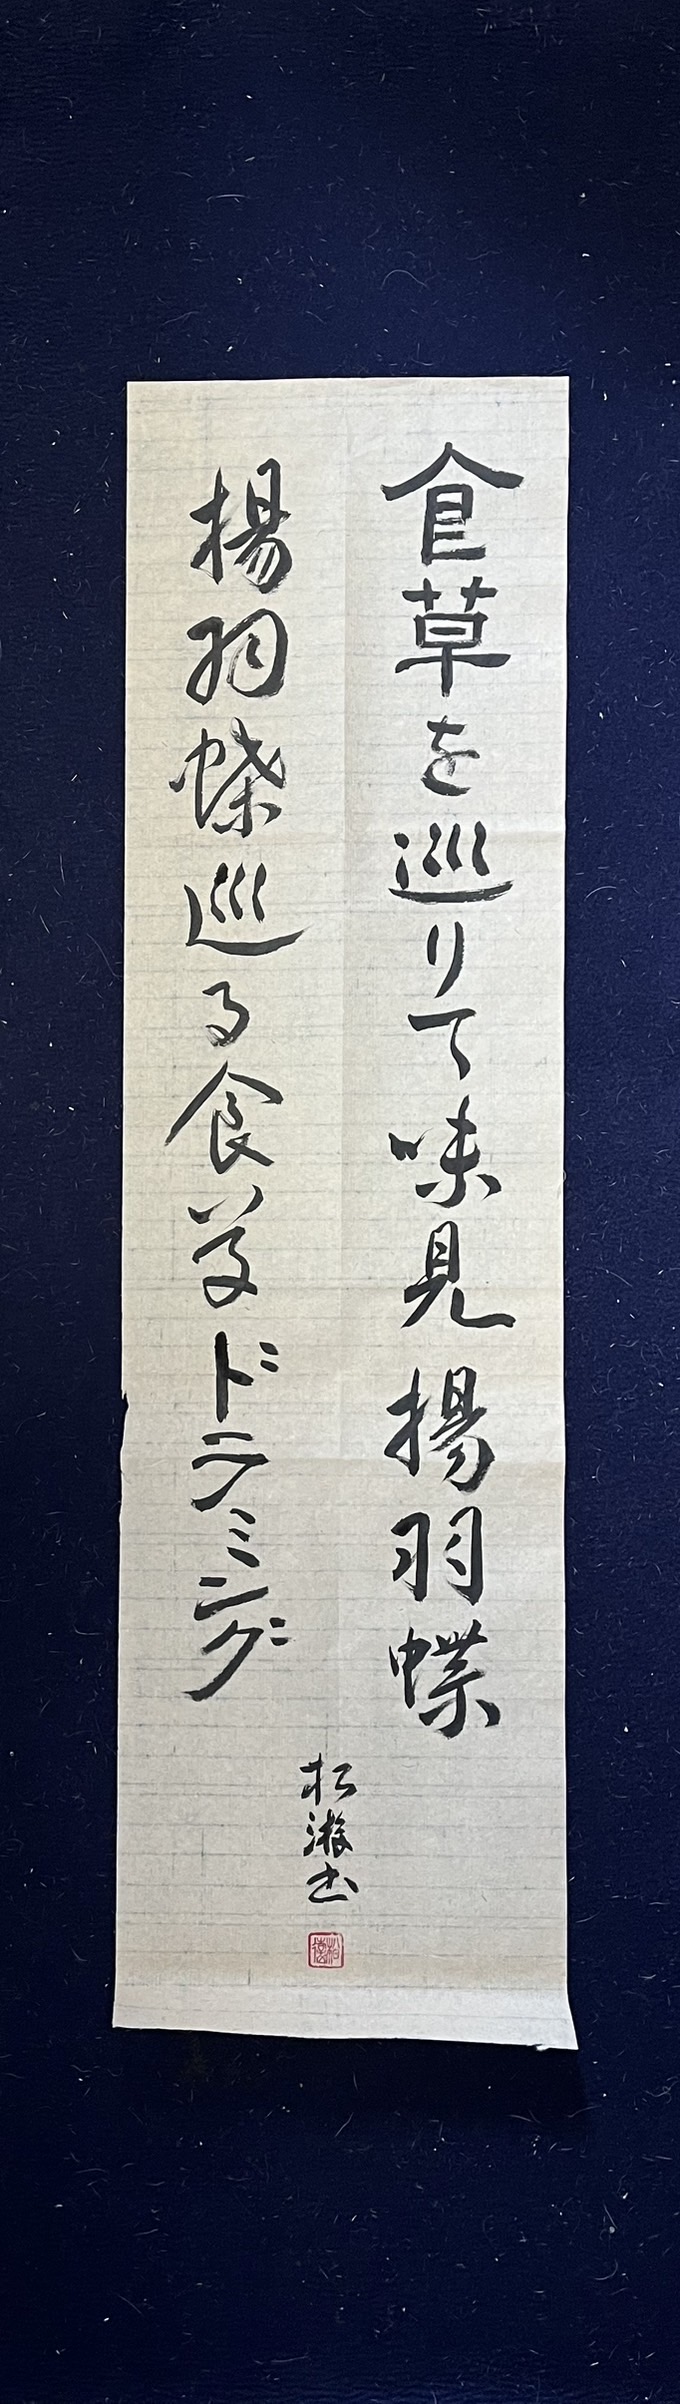 食草を巡りて味見揚羽蝶
揚羽蝶巡る食草ドラミング
松濤書